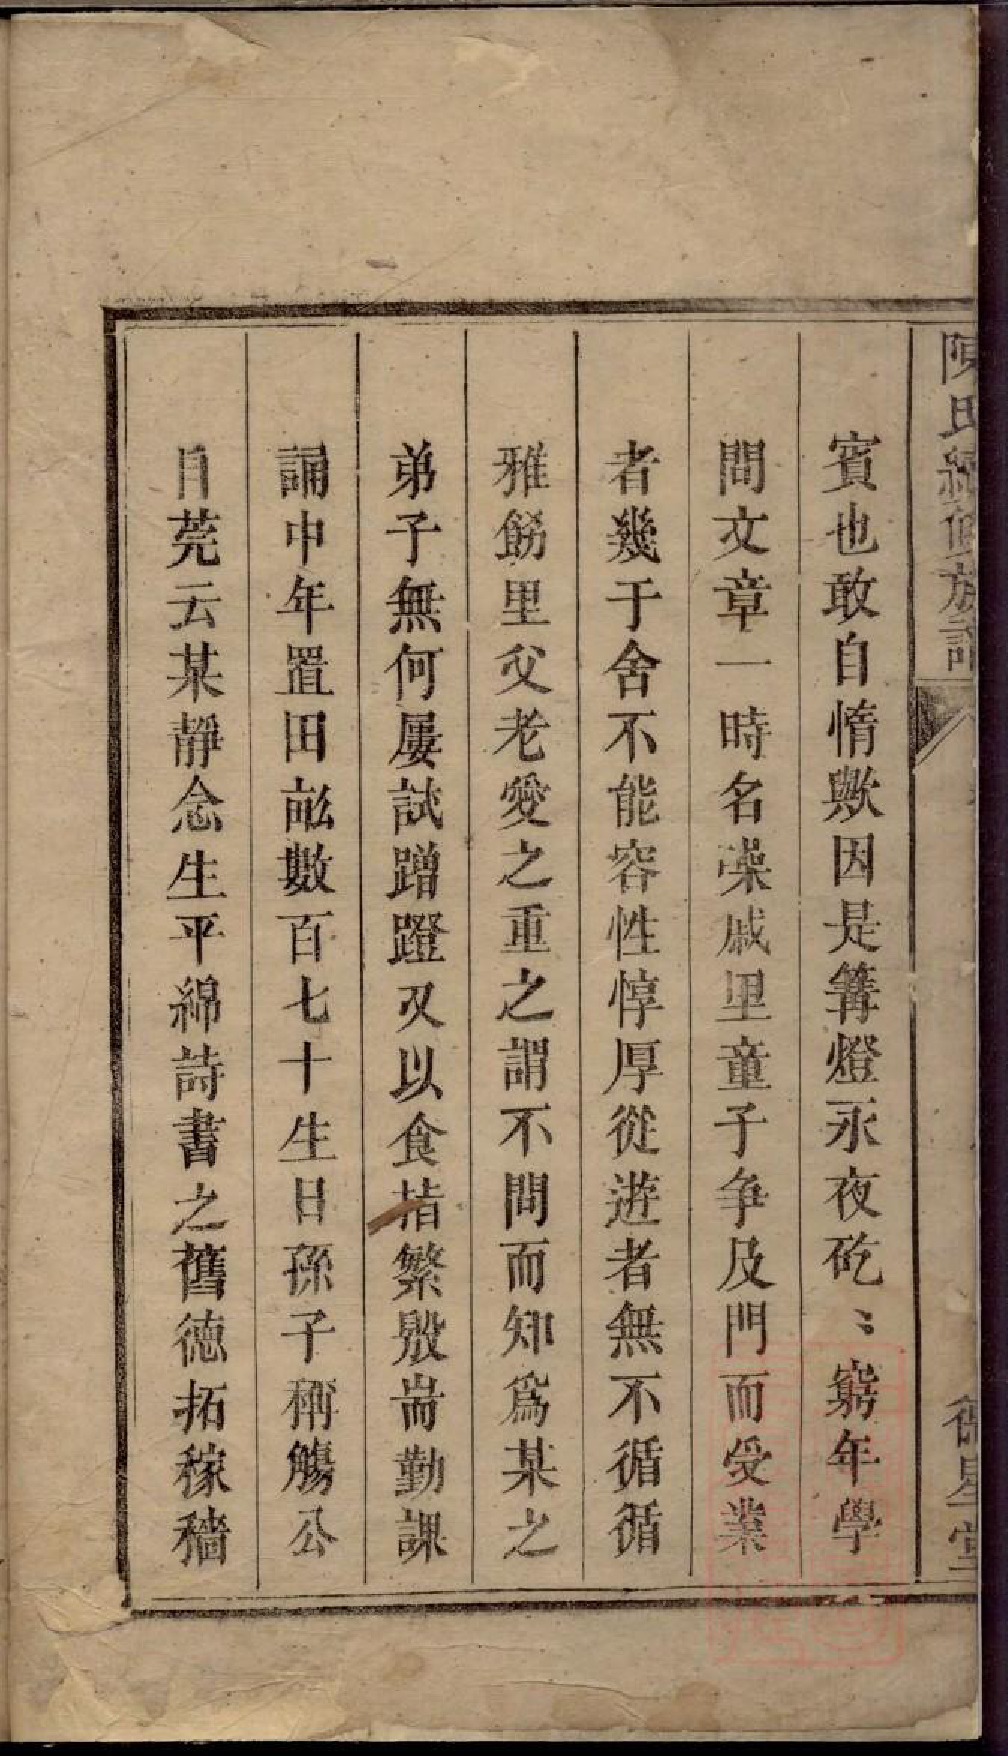 陳氏續修族譜
德星堂
賓也敢自惰歟因是篝燈永夜矻〻窮年學
問文章一時名澡戚里童子争及門而受業
者幾于舍不能容性惇厚從遊者無不循循
雅飭里父老愛之重之謂不問而知爲某之
弟子無何屢試蹭蹬又以食指繁殷耑勤課
誦中年置田畝數百七十生日孫子稱觴公
目莞云某靜念生平綿詩書之舊德拓稼穡